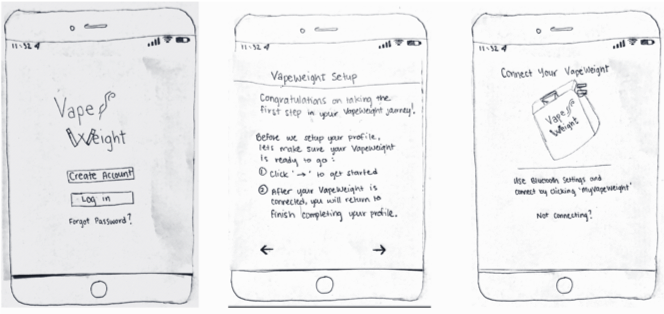 11:52
Vape
Weight
Create Account
Log in
Forgot Password?
11:52
VapeWeight Setup
Congratulations on taking the
first step in your VapeWeight journey!
Before we setup your profile,
lets make sure your VapeWeight
is ready to go:
① Click '→' to get started
② After your VapeWeight is
connected, you will return to
finish completing your profile.
← →
11:52
Connect Your VapeWeight
Vape
Weight
Use Bluetooth Settings and
connect by clicking 'MyVapeWeight'
Not Connecting?